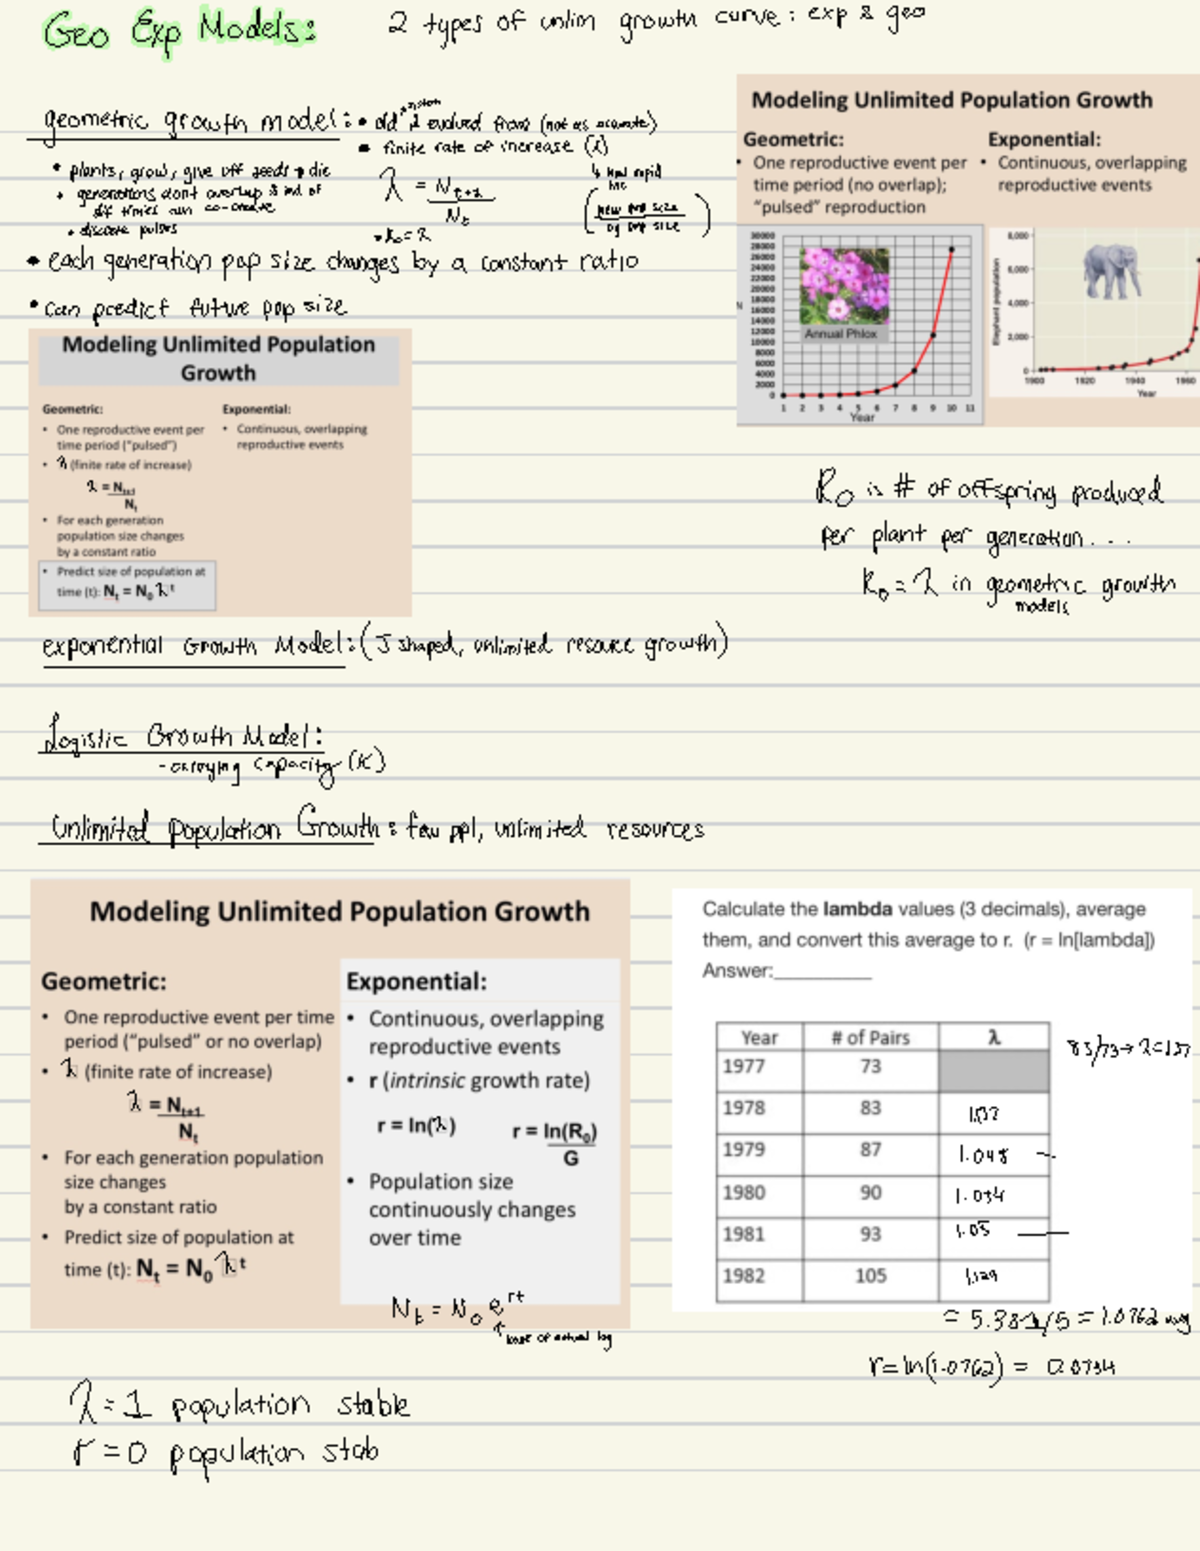 Geo Exp Models:
2 types of unlim growth curve: exp & geo
geometric growth model:
• old & evolved from (not as accurate)
• finite rate of increase (λ)
• plants, grow, give off seeds → die
• generations dont overlap & ind of
dif times can co-create
• discrete pulses
λ = Nt+1
Nt
↳ how rapid
inc
new pop size
og pop size
• R₀ = λ
• each generation pop size changes by a constant ratio
• can predict future pop size
Modeling Unlimited Population Growth
Geometric:
• One reproductive event per
time period (no overlap);
"pulsed" reproduction
Exponential:
• Continuous, overlapping
reproductive events
30000
28000
26000
24000
22000
20000
18000
16000
14000
12000
10000
8000
6000
4000
2000
0
N
Annual Phlox
1 2 3 4 5 6 7 8 9 10 11
Year
8,000
6,000
4,000
2,000
0
Elephant population
1900 1920 1940 1960
Year
Modeling Unlimited Population
Growth
Geometric:
• One reproductive event per
time period ("pulsed")
• λ (finite rate of increase)
λ = Nt+1
Nt
• For each generation
population size changes
by a constant ratio
• Predict size of population at
time (t): Nt = N0 λt
Exponential:
• Continuous, overlapping
reproductive events
R₀ is # of offspring produced
per plant per generation...
R₀ = λ in geometric growth
models
exponential Growth Model: (J shaped, unlimited resource growth)
Logistic Growth Model:
- carrying capacity (K)
Unlimited population Growth: few ppl, unlimited resources
Modeling Unlimited Population Growth
Geometric:
• One reproductive event per time
period ("pulsed" or no overlap)
• λ (finite rate of increase)
λ = Nt+1
Nt
• For each generation population
size changes
by a constant ratio
• Predict size of population at
time (t): Nt = N0 λt
Exponential:
• Continuous, overlapping
reproductive events
• r (intrinsic growth rate)
r = ln(λ) r = ln(R0)
G
• Population size
continuously changes
over time
Nt = N₀ e^rt
↑ base of natural log
Calculate the lambda values (3 decimals), average
them, and convert this average to r. (r = ln[lambda])
Answer:__________
Year # of Pairs λ
1977 73
1978 83 1.137
1979 87 1.048
1980 90 1.034
1981 93 1.03
1982 105 1.129
83/73 → λ = 1.137
= 5.381/5 = 1.0762 avg
r = ln(1.0762) = 0.0734
λ = 1 population stable
r = 0 population stab